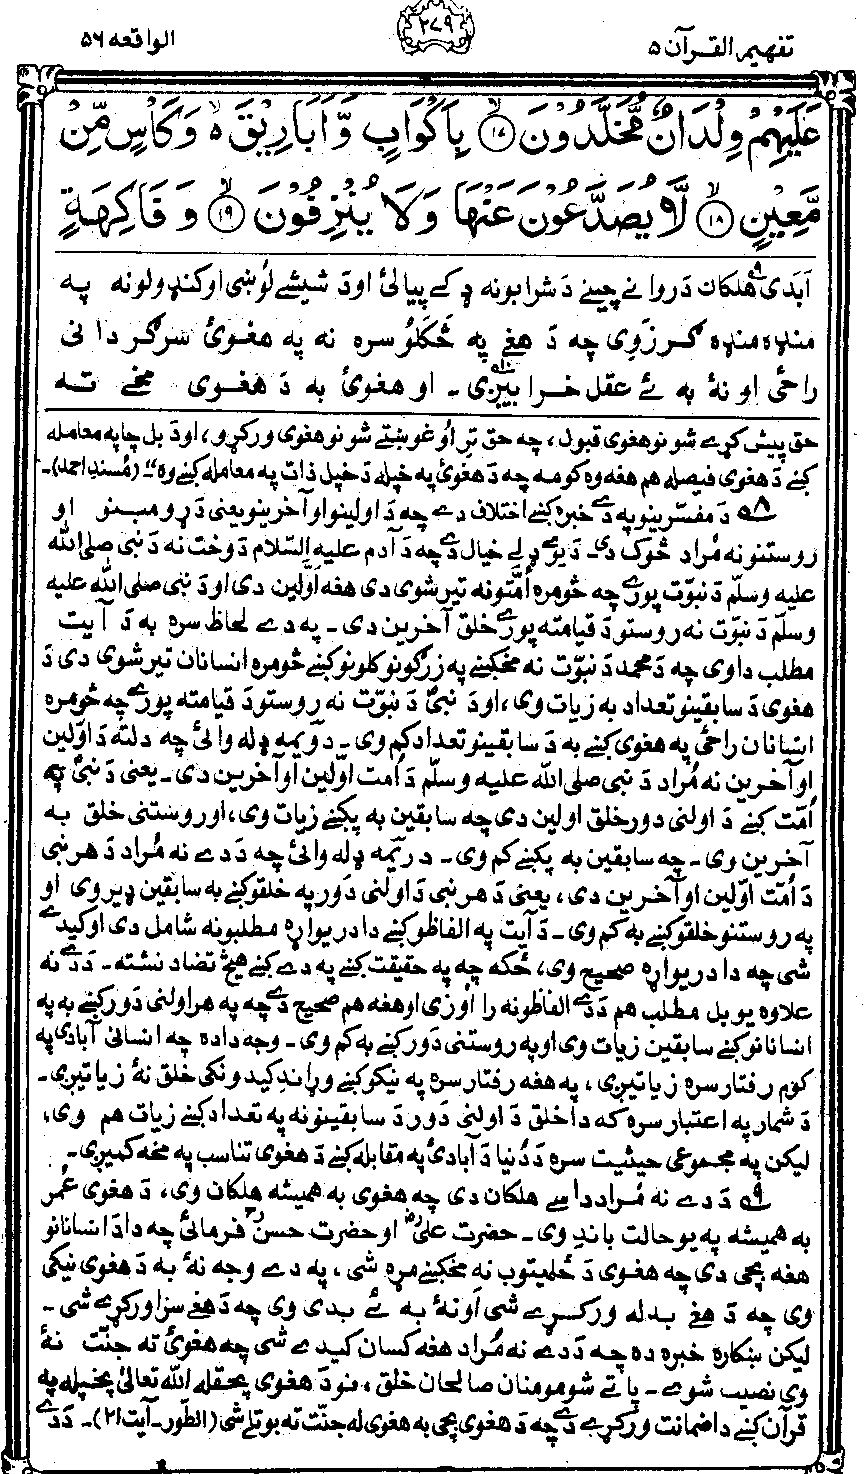 تفهیم القرآن ۵
۲۷۹
الواقعه ۵۶
عَلَيْهِمْ وِلْدَانٌ مُّخَلَّدُوْنَ ۝۱۷ بِاَكْوَابٍ وَّاَبَارِيْقَ ەۙ وَكَاْسٍ مِّنْ
مَّعِيْنٍ ۝۱۸ لَّا يُصَدَّعُوْنَ عَنْهَا وَلَا يُنْزِفُوْنَ ۝۱۹ وَفَاكِهَةٍ
اَبَدی ۹ هلکان دَ روانے چینے دَ شرابونو ډکے پیالئ اودَ شیشے لوښی اوکنډولونه په
منډه منډه ګرزَوِی چه دَ هغے په څکلو سره نه په هغوئ سرګردانی
راځی او نهٔ به ئے عقل خرابیږی ۱۰ ـ او هغوئ به دَ هغوی مخے ته
حق پیش کړے شو نو هغوی قبول، چه حق تر اوغوښتے شو نو هغوی ورکړو، اودَ بل چا په معامله
کښے دَ هغوی فیصله هم هغه وه کومه چه دَ هغوئ په خپله دَ خپل ذات په معامله کښے وه" (مُسندِ احمد)ـ
۸ دَ مفسرینو په دے خبره کښے اختلاف دے چه دَ اولینو او آخرینو یعنی دَ ړومبنو او
روستنو نه مُراد څوک دی ـ دَ یوے ډلے خیال دے چه دَ آدم علیه السّلام دَ وخت نه دَ نبی صلی الله
علیه وسلّم دَ نبوّت پورے چه څومره اُمّتونه تیر شوی دی هغه اوّلین دی اودَ نبی صلی الله علیه
وسلّم دَ نبوّت نه روستو دَ قیامته پورے خلق آخرین دی ـ په دے لحاظ سره به دَ آیت
مطلب دا وی چه دَ محمد دَ نبوّت نه مخکښے په زرګونو کلونو کښے څومره انسانان تیر شوی دی دَ
هغوی دَ سابقینو تعداد به زیات وی، اودَ نبیؐ دَ نبوّت نه روستو دَ قیامته پورے چه څومره
انسانان راځی په هغوی کښے به دَ سابقینو تعداد کم وی ـ دوّیمه ډله وائی چه دلته دَ اوّلین
او آخرین نه مُراد دَ نبی صلی الله علیه وسلّم دَ اُمت اوّلین او آخرین دی ـ یعنی دَ نبیؐ په
اُمّت کښے دَ اولنی دور خلق اولین دی چه سابقین به پکښے زیات وی، اوروستنی خلق به
آخرین وی ـ چه سابقین به پکښے کم وی ـ دریّمه ډله وائی چه دَ دے نه مُراد دَ هر نبی
دَ اُمّت اوّلین او آخرین دی، یعنی دَ هر نبی دَ اولنی دَور په خلقو کښے به سابقین ډیر وی او
په روستنو خلقو کښے به کم وی ـ دَ آیت په الفاظو کښے دا دریواړه مطلبونه شامل دی اوکیدے
شی چه دا دریواړه صحیح وی، ځکه چه په حقیقت کښے په دے کښے هیڅ تضاد نشته ـ دَ دے نه
علاوه یو بل مطلب هم دَ دے الفاظونه را اُوزی او هغه هم صحیح دے چه په هر اولنی دَور کښے به په
انسانانو کښے سابقین زیات وی او په روستنی دَور کښے به کم وی ـ وجه دا ده چه انسانی آبادی په
کوم رفتار سره زیاتیږی، په هغه رفتار سره په نیکو کښے وړاندِ کیدونکی خلق نهٔ زیاتیږی ـ
دَ شمار په اعتبار سره که دا خلق دَ اولنی دَور دَ سابقینو نه په تعداد کښے زیات هم وی،
لیکن په مجموعی حیثیت سره دَ دُنیا دَ آبادیٔ په مقابله کښے دَ هغوی تناسب په مخه کمیږی ـ
۹ دَ دے نه مُراد داسے هلکان دی چه هغوی به همیشه هلکان وی، دَ هغوی عُمر
به همیشه په یو حالت باندِ وی ـ حضرت علیؓ او حضرت حسنؒ فرمائی چه دا دَ انسانانو
هغه بچی دی چه هغوی دَ ځلمیتوب نه مخکښے مړهٔ شی، په دے وجه نهٔ به دَ هغوی نیکی
وی چه دَ هغے بدله ورکړے شی اَونهٔ به ئے بدی وی چه دَ هغے سزا ورکړے شی ـ
لیکن ښکاره خبره ده چه دَ دے نه مُراد هغه کسان کیدے شی چه هغوئ ته جنّت نهٔ
وی نصیب شوے ـ پاتے شو مومنان صالحان خلق، نو دَ هغوی په حقله الله تعالیٰ پخپله په
قرآن کښے دا ضمانت ورکړے دے چه دَ هغوی بچی به هغوی له جنّت ته بوتلے شی (الطّور ـ آیت ۲۱) ـ دَ دے